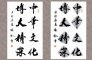 中華文化
博大精深
中華文化
博大精深